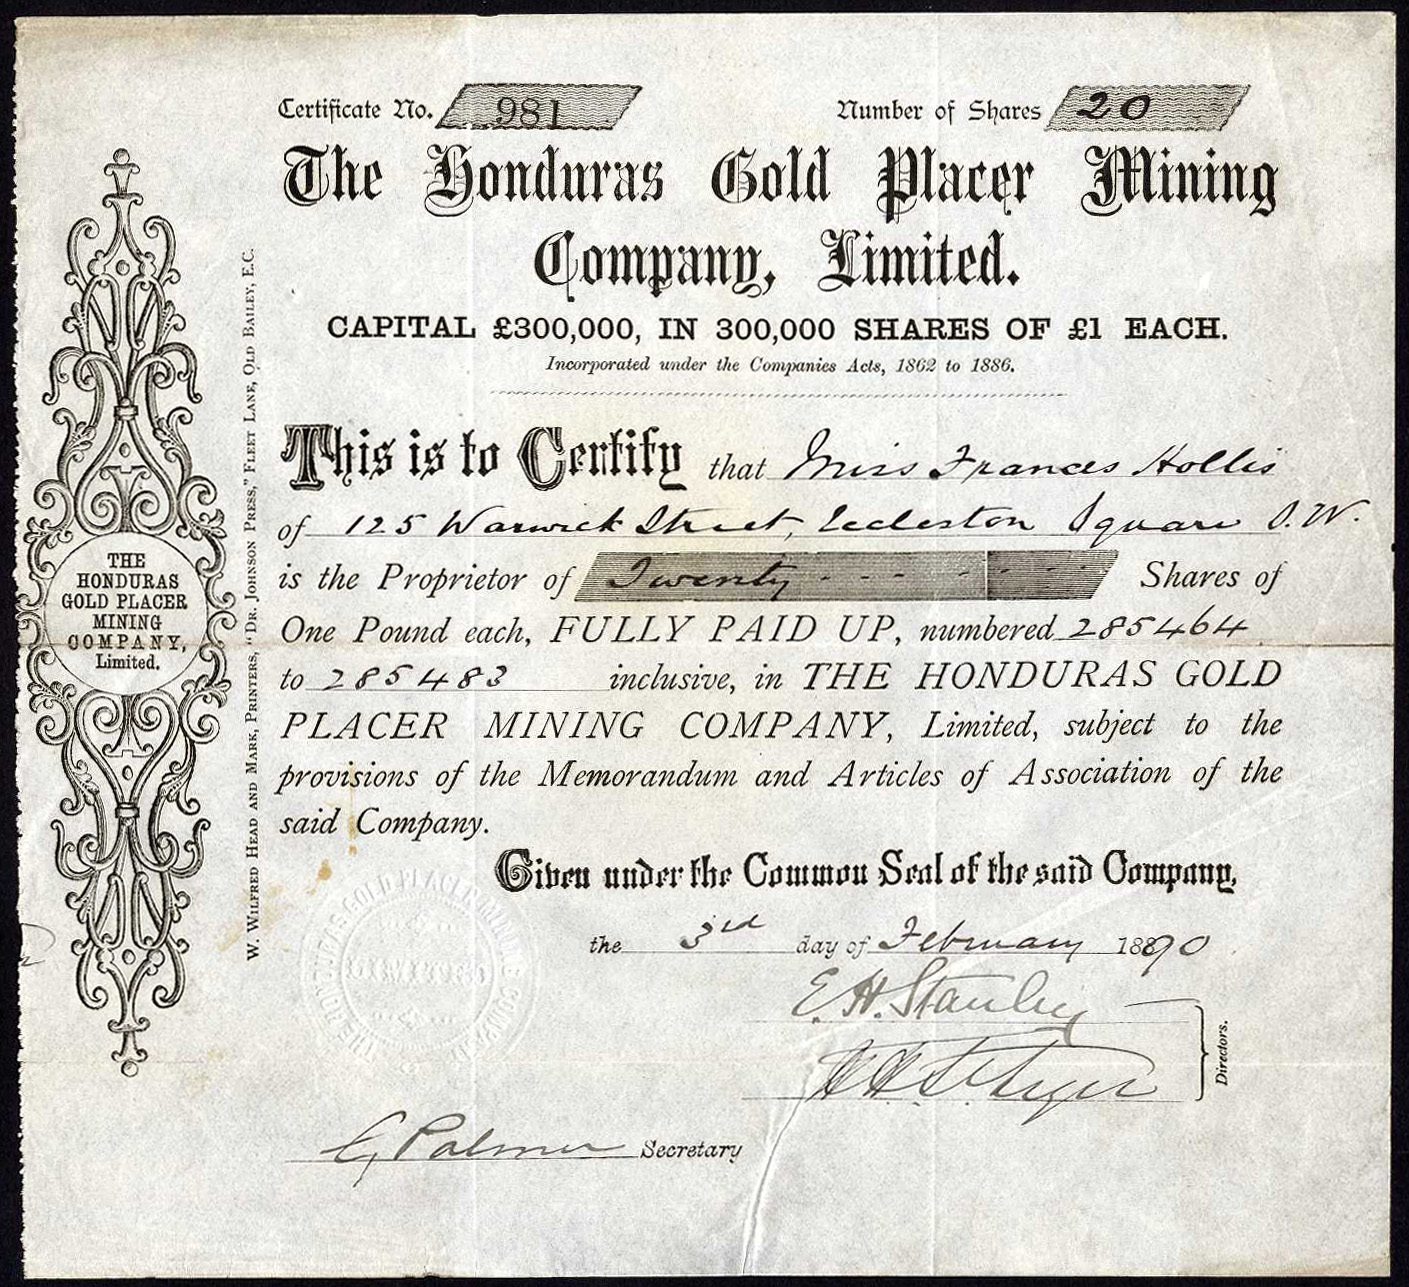 Certificate No. 981
Number of Shares 20
The Honduras Gold Placer Mining
Company, Limited.
CAPITAL £300,000, IN 300,000 SHARES OF £1 EACH.
Incorporated under the Companies Acts, 1862 to 1886.
This is to Certify that Miss Frances Hollis
of 125 Warwick Street, Eccleston Square S.W.
is the Proprietor of Twenty Shares of
One Pound each, FULLY PAID UP, numbered 285464
to 285483 inclusive, in THE HONDURAS GOLD
PLACER MINING COMPANY, Limited, subject to the
provisions of the Memorandum and Articles of Association of the
said Company.
Given under the Common Seal of the said Company,
the 3rd day of February 1890
E. H. Stanley
Directors.
C Palmer Secretary
THE
HONDURAS
GOLD PLACER
MINING
COMPANY,
Limited.
W. WILFRED HEAD AND MARK, PRINTERS, "DR. JOHNSON PRESS," FLEET LANE, OLD BAILEY, E.C.
THE HONDURAS GOLD PLACER MINING COMPANY
LIMITED